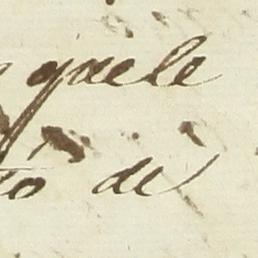 quele
to di